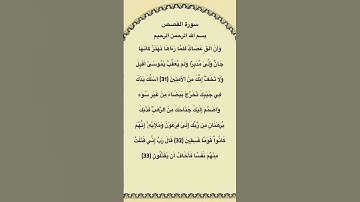 سورة القصص
بسم الله الرحمن الرحيم
وَأَنْ أَلْقِ عَصَاكَ فَلَمَّا رَآهَا تَهْتَزُّ كَأَنَّهَا
جَانٌّ وَلَّى مُدْبِرًا وَلَمْ يُعَقِّبْ يَا مُوسَى أَقْبِلْ
وَلَا تَخَفْ إِنَّكَ مِنَ الْآمِنِينَ (31) اسْلُكْ يَدَكَ
فِي جَيْبِكَ تَخْرُجْ بَيْضَاءَ مِنْ غَيْرِ سُوءٍ
وَاضْمُمْ إِلَيْكَ جَنَاحَكَ مِنَ الرَّهْبِ فَذَانِكَ
بُرْهَانَانِ مِن رَّبِّكَ إِلَى فِرْعَوْنَ وَمَلَئِهِ إِنَّهُمْ
كَانُوا قَوْمًا فَاسِقِينَ (32) قَالَ رَبِّ إِنِّي قَتَلْتُ
مِنْهُمْ نَفْسًا فَأَخَافُ أَن يَقْتُلُونِ (33)